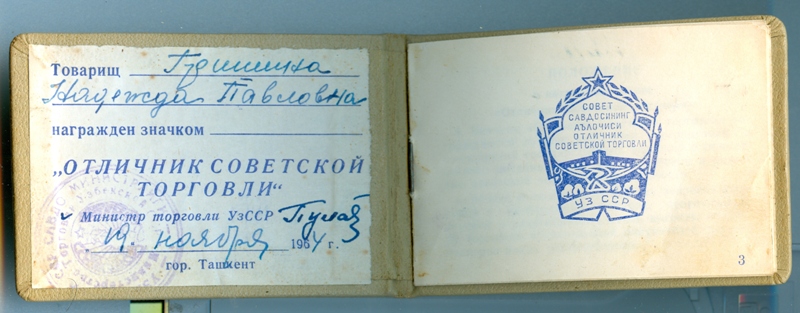 Товарищ Гришина
Надежда Павловна
награжден значком
„ОТЛИЧНИК СОВЕТСКОЙ
ТОРГОВЛИ“
Министр торговли УзССР
19 ноября 1964 г.
гор. Ташкент
СОВЕТ
САВДОСИНИНГ
АЪЛОЧИСИ
ОТЛИЧНИК
СОВЕТСКОЙ ТОРГОВЛИ
УЗ ССР
3